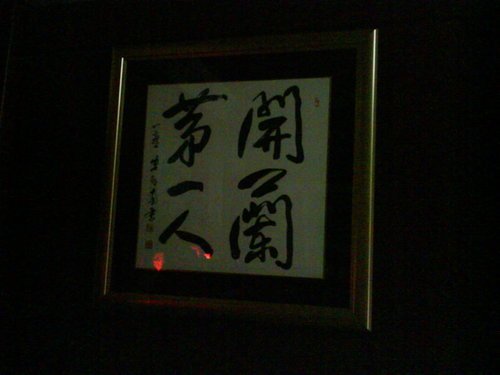 開蘭
第一人